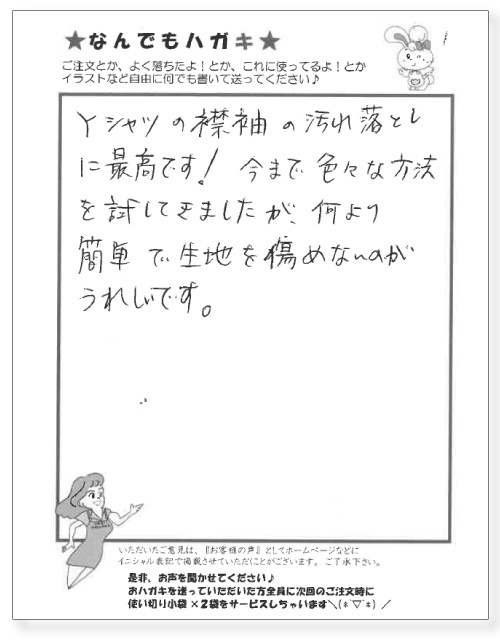 ★なんでもハガキ★
ご注文とか、よく落ちたよ！とか、これに使ってるよ！とか
イラストなど自由に何でも書いて送ってください♪
Yシャツの襟袖の汚れ落とし
に最高です！今まで色々な方法
を試してきましたが、何より
簡単で生地を傷めないのが
うれしいです。
いただいたご意見は、『お客様の声』としてホームページなどに
イニシャル表記で掲載させていただくことがございます。ご了承下さい。
是非、お声を聞かせてください♪
おハガキを送っていただいた方全員に次回のご注文時に
使い切り小袋×2袋をサービスしちゃいます＼(*ˊ▽ˋ*)／